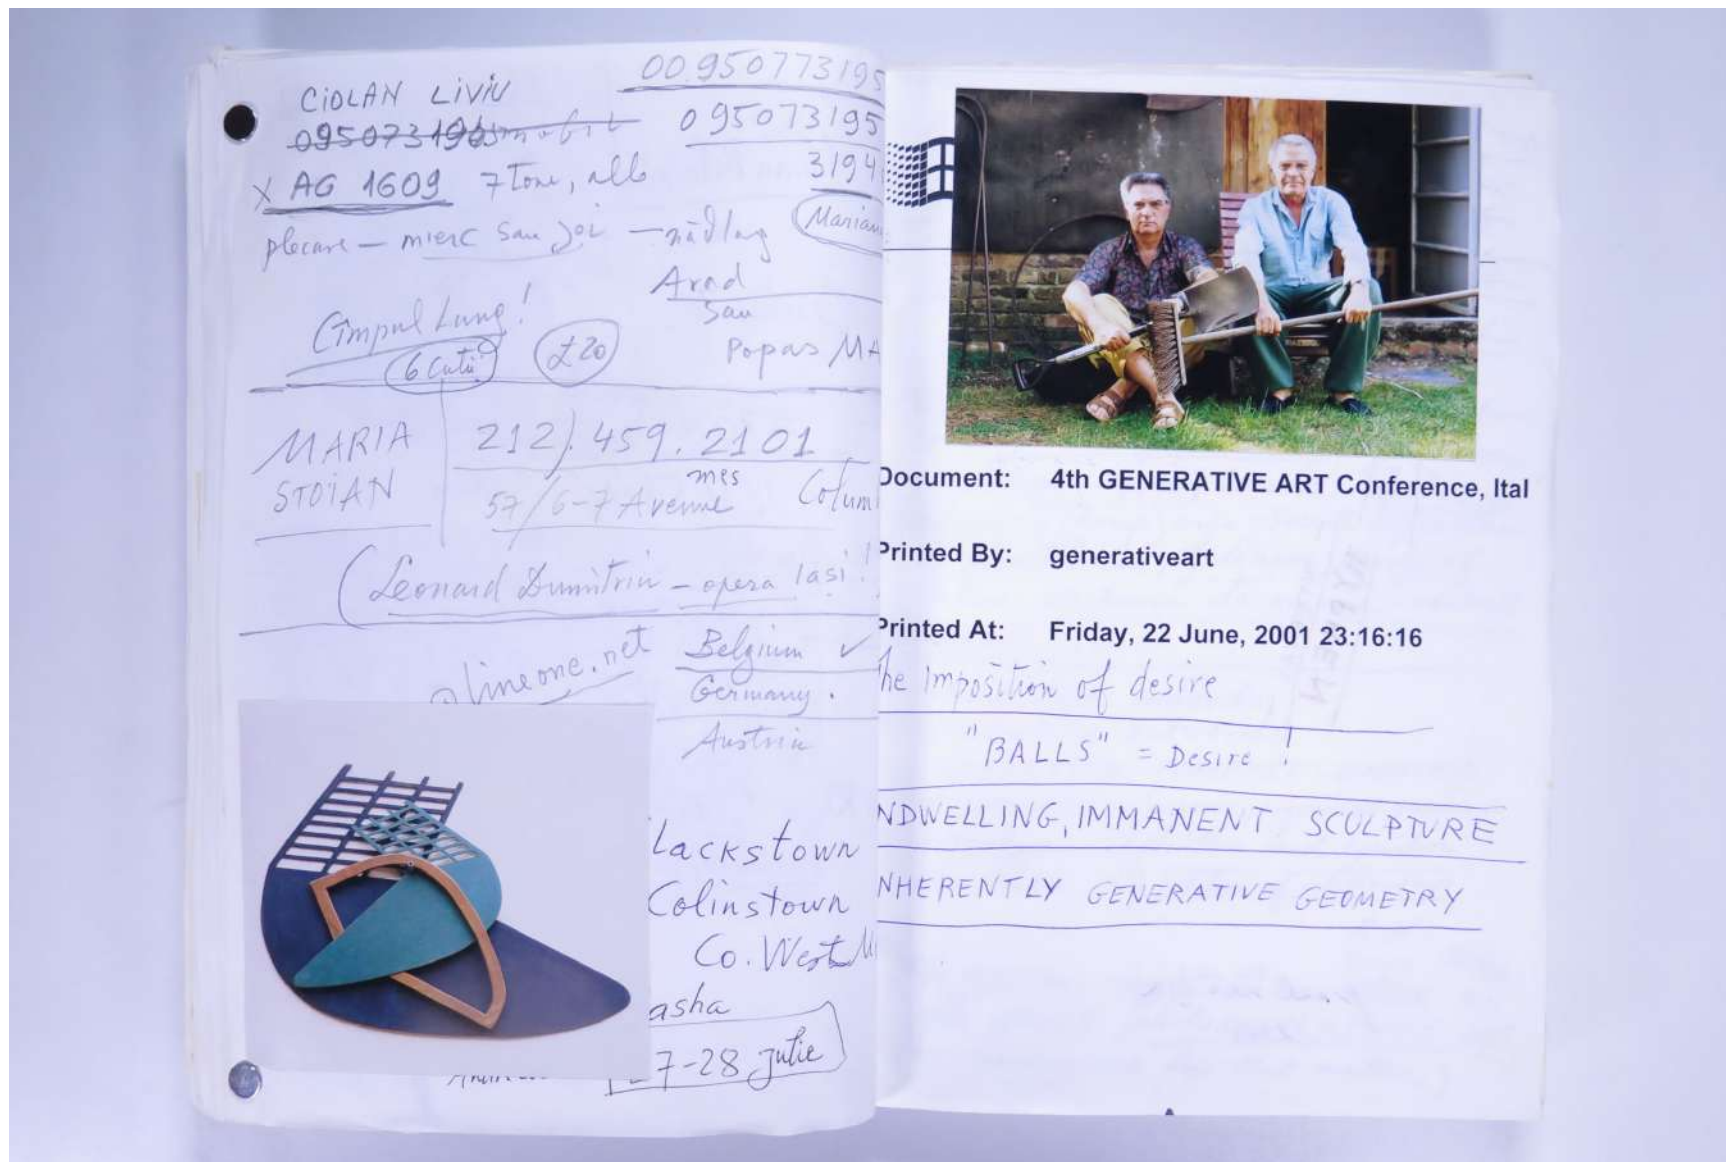 CIOLAN LIVIU
00.950773195
095073195
X AG 1609 7 Tone, alb
3194
plecare – mierc sau joi – nădlag
Arad
sau
Cîmpul Lung!
6 Cutii
£20
Popas MA
MARIA
STOIAN
212).459.2101
57/6-7 Avenue
mes
Colum
(Leonard Dumitriu – opera Iasi!
@lineone.net
Belgium ✓
Germany.
Austria
lackstown
Colinstown
Co. West M
asha
7-28 Julie
Document: 4th GENERATIVE ART Conference, Ital
Printed By: generativeart
Printed At: Friday, 22 June, 2001 23:16:16
he Imposition of desire
"BALLS" = Desire !
NDWELLING, IMMANENT SCULPTURE
NHERENTLY GENERATIVE GEOMETRY